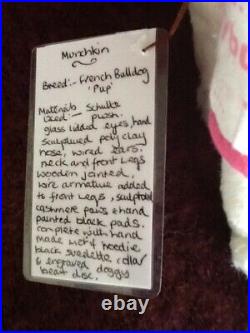 Munchkin
Breed:- French Bulldog
'Pup'
Materials Schulte
Used:- plush.
glass lidded eyes, hand
sculptured polyclay
nose, wired ears,
neck and front legs
wooden jointed,
wire armature added
to front legs, sculpted
cashmere paws & hand
painted black pads.
complete with hand
made hoodie
black suedette collar
& engraved doggy
bear disc.